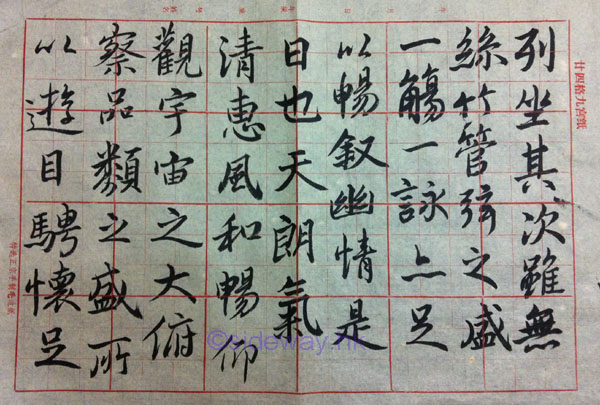 列坐其次雖無
絲竹管弦之盛
一觴一詠亦足
以暢叙幽情是
日也天朗氣
清惠風和暢仰
觀宇宙之大俯
察品類之盛所
以遊目騁懷足
廿四格九宮紙
©sideway.hk